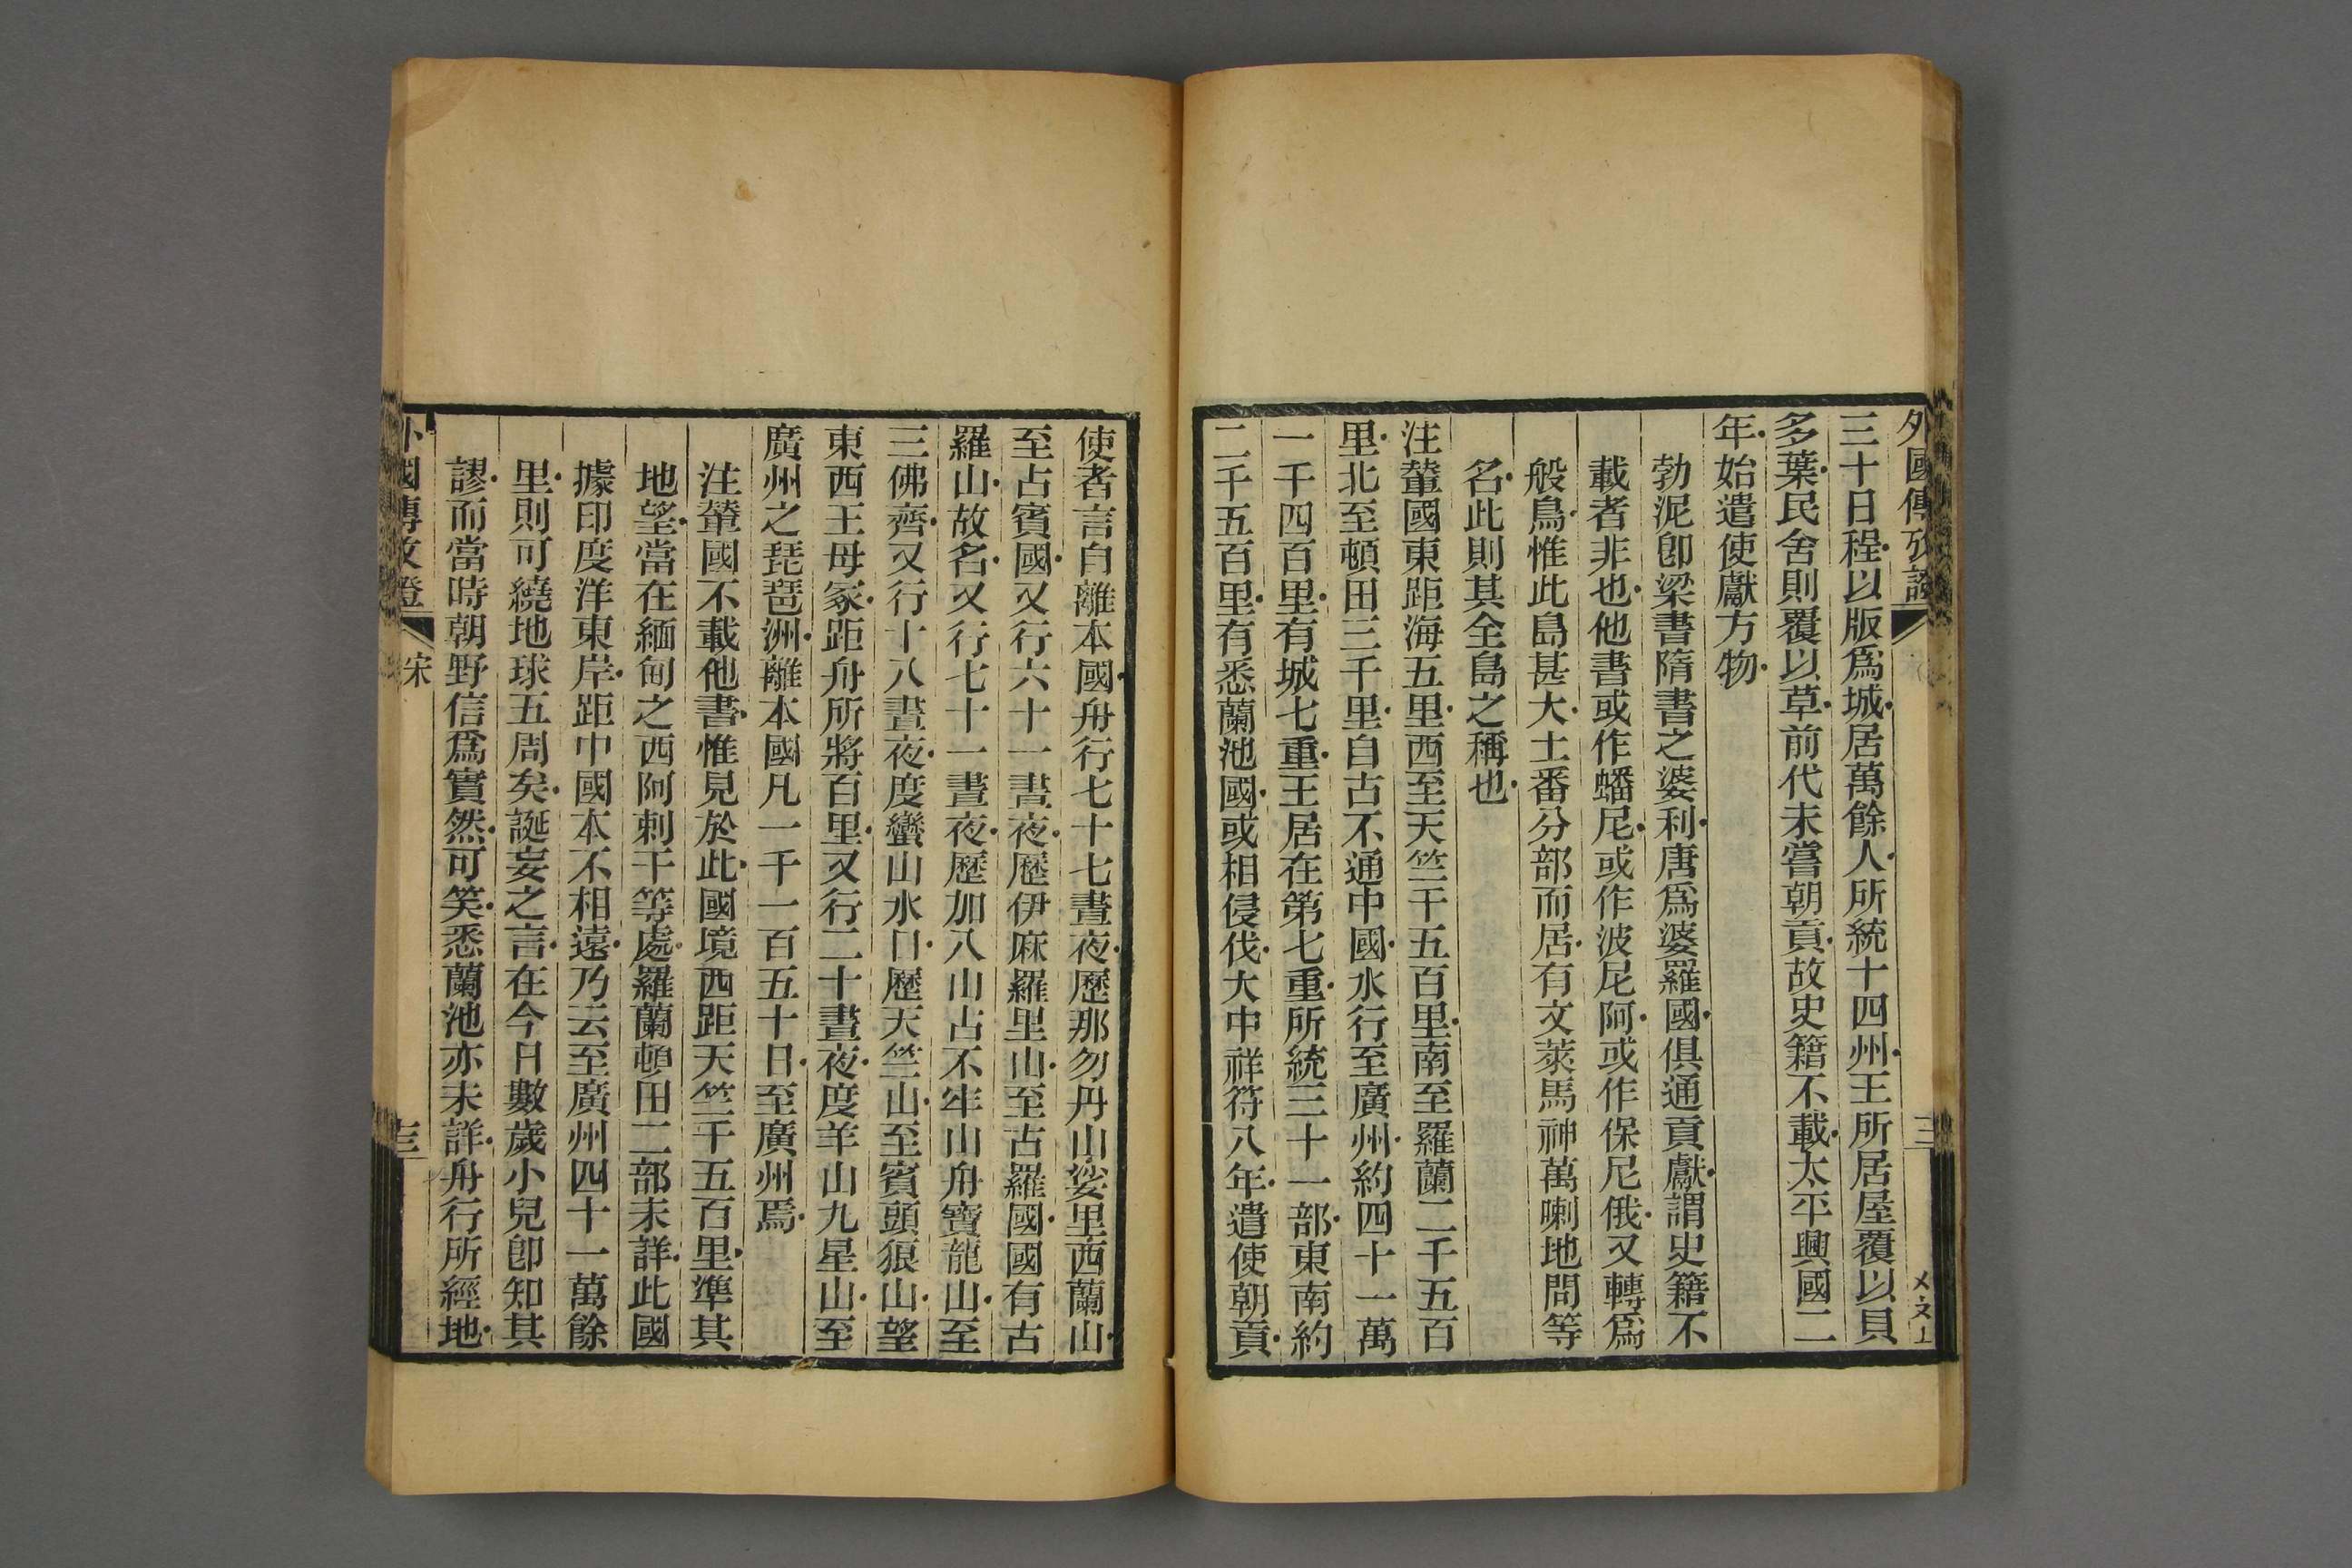 外國傳攷證
三十日程以版爲城居萬餘人所統十四州王所居屋覆以貝
多葉民舍則覆以草前代未嘗朝貢故史籍不載太平興國二
年始遣使獻方物
勃泥卽梁書隋書之婆利唐爲婆羅國俱通貢獻謂史籍不
載者非也他書或作蟠尼或作波尼阿或作保尼俄又轉爲
般鳥惟此島甚大土番分部而居有文萊馬神萬喇地問等
名此則其全島之稱也
注輦國東距海五里西至天竺千五百里南至羅蘭二千五百
里北至頓田三千里自古不通中國水行至廣州約四十一萬
一千四百里有城七重王居在第七重所統三十一部東南約
二千五百里有悉蘭池國或相侵伐大中祥符八年遣使朝貢
使者言自離本國舟行七十七晝夜歷那勿丹山娑里西蘭山
至占賓國又行六十一晝夜歷伊麻羅里山至古羅國國有古
羅山故名又行七十一晝夜歷加八山占不牢山舟寶龍山至
三佛齊又行十八晝夜度蠻山水口歷天竺山至賓頭狼山望
東西王母冢距舟所將百里又行二十晝夜度羊山九星山至
廣州之琵琶洲離本國凡一千一百五十日至廣州焉
注輦國不載他書惟見於此國境西距天竺千五百里準其
地望當在緬甸之西阿剌干等處羅蘭頓田二部未詳此國
據印度洋東岸距中國本不相遠乃云至廣州四十一萬餘
里則可繞地球五周矣誕妄之言在今日數歲小兒卽知其
謬而當時朝野信爲實然可笑悉蘭池亦未詳舟行所經地
外國傳攷證 宋 三